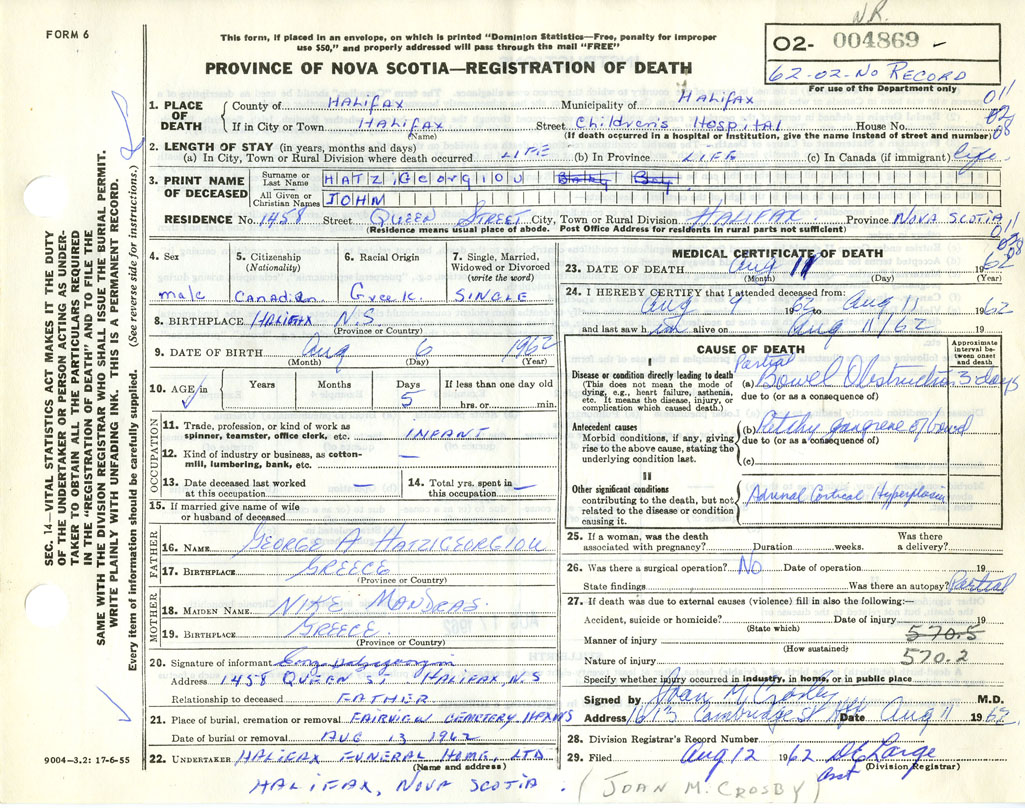 N.R.
FORM 6
This form, if placed in an envelope, on which is printed "Dominion Statistics—Free, penalty for improper
use $50," and properly addressed will pass through the mail "FREE"
PROVINCE OF NOVA SCOTIA—REGISTRATION OF DEATH
02- 004869
62-02-No RECORD
For use of the Department only
011
02
08
1. PLACE OF DEATH
County of HALIFAX Municipality of HALIFAX
If in City or Town HALIFAX Street Children's HOSPITAL House No.
(Name) (If death occurred in a hospital or institution, give the name instead of street and number)
2. LENGTH OF STAY (in years, months and days)
(a) In City, Town or Rural Division where death occurred LIFE (b) In Province LIFE (c) In Canada (if immigrant) life
3. PRINT NAME OF DECEASED
Surname or Last Name HATZIGEORGIOU Baby Boy
All Given or Christian Names JOHN
RESIDENCE No. 1458 Street QUEEN STREET City, Town or Rural Division HALIFAX Province NOVA SCOTIA
(Residence means usual place of abode. Post Office Address for residents in rural parts not sufficient)
011
02
08
4. Sex
male
5. Citizenship
(Nationality)
Canadian
6. Racial Origin
Greek
7. Single, Married,
Widowed or Divorced
(write the word)
SINGLE
8. BIRTHPLACE HALIFAX N.S.
(Province or Country)
9. DATE OF BIRTH Aug 6 1962
(Month) (Day) (Year)
10. AGE Years Months Days If less than one day old
5 hrs. or min.
OCCUPATION
11. Trade, profession, or kind of work as
spinner, teamster, office clerk, etc. INFANT
12. Kind of industry or business, as cotton-
mill, lumbering, bank, etc. —
13. Date deceased last worked
at this occupation —
14. Total yrs. spent in
this occupation —
15. If married give name of wife
or husband of deceased
FATHER
16. NAME GEORGE A HATZIGEORGIOU
17. BIRTHPLACE GREECE
(Province or Country)
MOTHER
18. MAIDEN NAME NIKE MANDRAS
19. BIRTHPLACE GREECE
(Province or Country)
20. Signature of informant
Address 1458 QUEEN ST HALIFAX, N.S
Relationship to deceased FATHER
21. Place of burial, cremation or removal FAIRVIEW CEMETERY
Date of burial or removal AUG 13 1962
22. UNDERTAKER HALIFAX FUNERAL HOME, LTD
(Name and address)
HALIFAX, NOVA SCOTIA.
MEDICAL CERTIFICATE OF DEATH
23. DATE OF DEATH Aug 11 1962
(Month) (Day) (Year)
24. I HEREBY CERTIFY that I attended deceased from:
Aug 9 1962 to Aug 11 1962
and last saw him alive on Aug 11/62 19
CAUSE OF DEATH
Approximate
interval be-
tween onset
and death
I
Disease or condition directly leading to death
(This does not mean the mode of
dying, e.g., heart failure, asthenia,
etc. It means the disease, injury, or
complication which caused death.)
Partial
(a) Bowel Obstruction 3 days
due to (or as a consequence of)
Antecedent causes
Morbid conditions, if any, giving
rise to the above cause, stating the
underlying condition last.
(b) Patchy gangrene of bowel
due to (or as a consequence of)
(c)
II
Other significant conditions
contributing to the death, but not
related to the disease or condition
causing it.
Adrenal Cortical Hyperplasia
25. If a woman, was the death
associated with pregnancy? Duration weeks. Was there
a delivery?
26. Was there a surgical operation? No Date of operation 19
State findings Was there an autopsy? Partial
27. If death was due to external causes (violence) fill in also the following:—
Accident, suicide or homicide? Date of injury 19
(State which)
Manner of injury 570.5
(How sustained)
Nature of injury 570.2
Specify whether injury occurred in industry, in home, or in public place
Signed by Joan M Crosby M.D.
Address 1613 Cambridge St Hfx Date Aug 11 1962
28. Division Registrar's Record Number
29. Filed Aug 12 1962
(Division Registrar)
Asst
(JOAN M. CROSBY)
SEC. 14—VITAL STATISTICS ACT MAKES IT THE DUTY
OF THE UNDERTAKER OR PERSON ACTING AS UNDER-
TAKER TO OBTAIN ALL THE PARTICULARS REQUIRED
IN THE "REGISTRATION OF DEATH" AND TO FILE THE
SAME WITH THE DIVISION REGISTRAR WHO SHALL ISSUE THE BURIAL PERMIT.
WRITE PLAINLY WITH UNFADING INK. THIS IS A PERMANENT RECORD.
Every item of information should be carefully supplied. (See reverse side for instructions.)
9004—3.2: 17-6-55